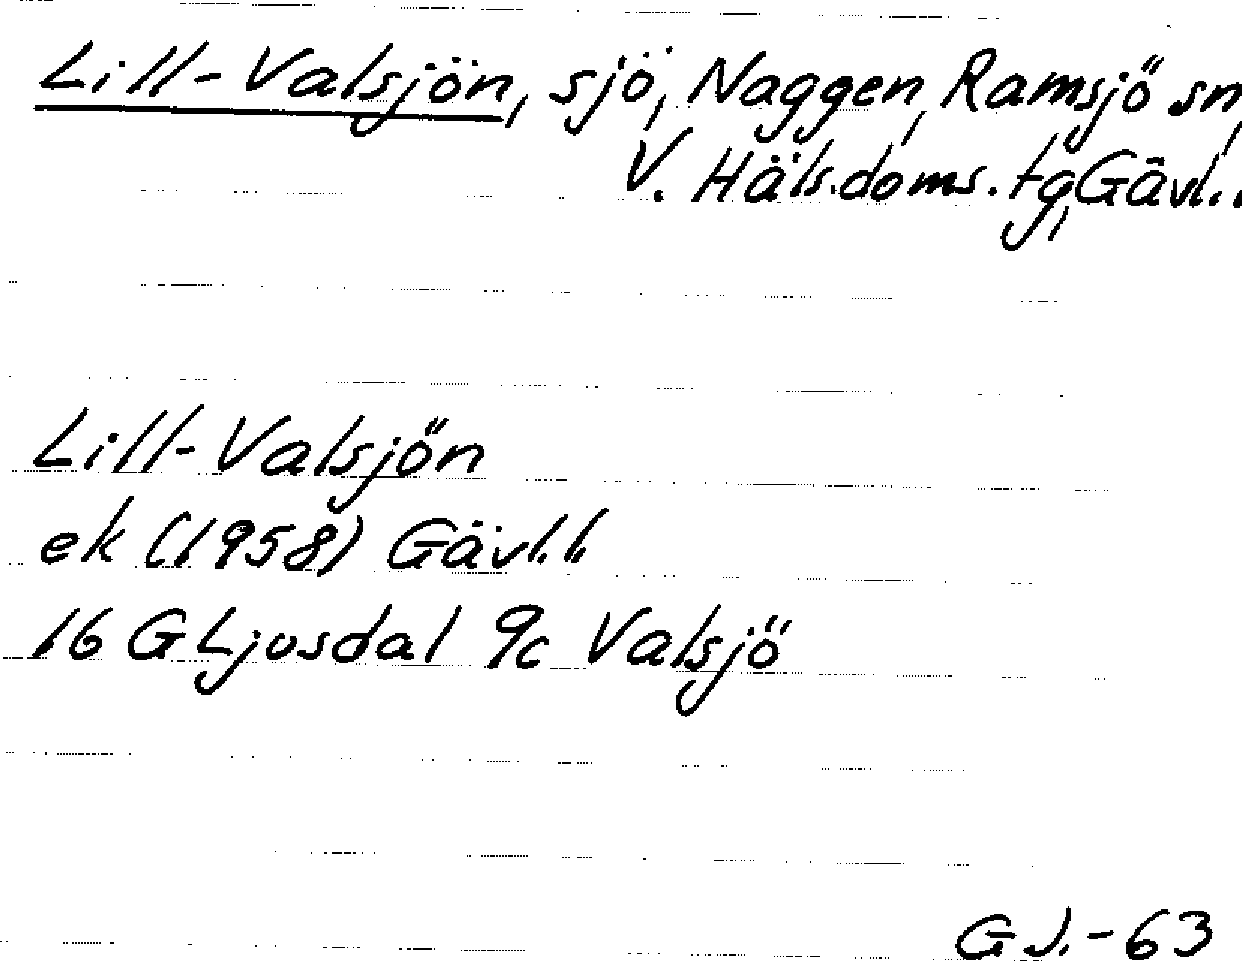 Lill-Valsjön, sjö, Naggen, Ramsjö sn,
V. Häls.doms. tg, Gävl.l.
Lill-Valsjön
ek (1958) Gävl.l.
16 G Ljusdal 9c Valsjö
G J.-63